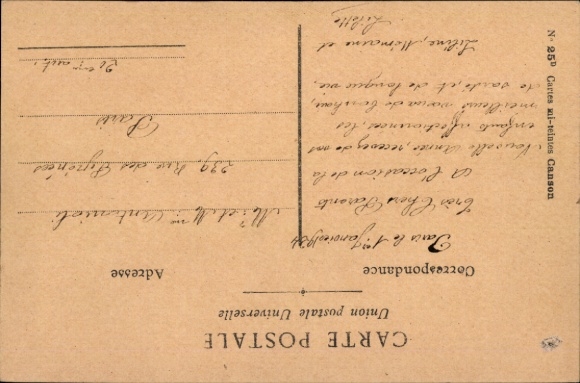 CARTE POSTALE
Union postale Universelle
Correspondance
Adresse
Paris le 1er Janvier 1934
Très Chers Parents
A l'occasion de la
Nouvelle Année recevez de vos
enfants affectionnés, les
meilleurs vœux de bonheur,
de santé, et de longue vie,
Liline, Moineine et
Lilette
Mr et Mme Antoniali
239 Rue des Pyrénées
Paris
20e
N° 25D Cartes mi-teintes Canson